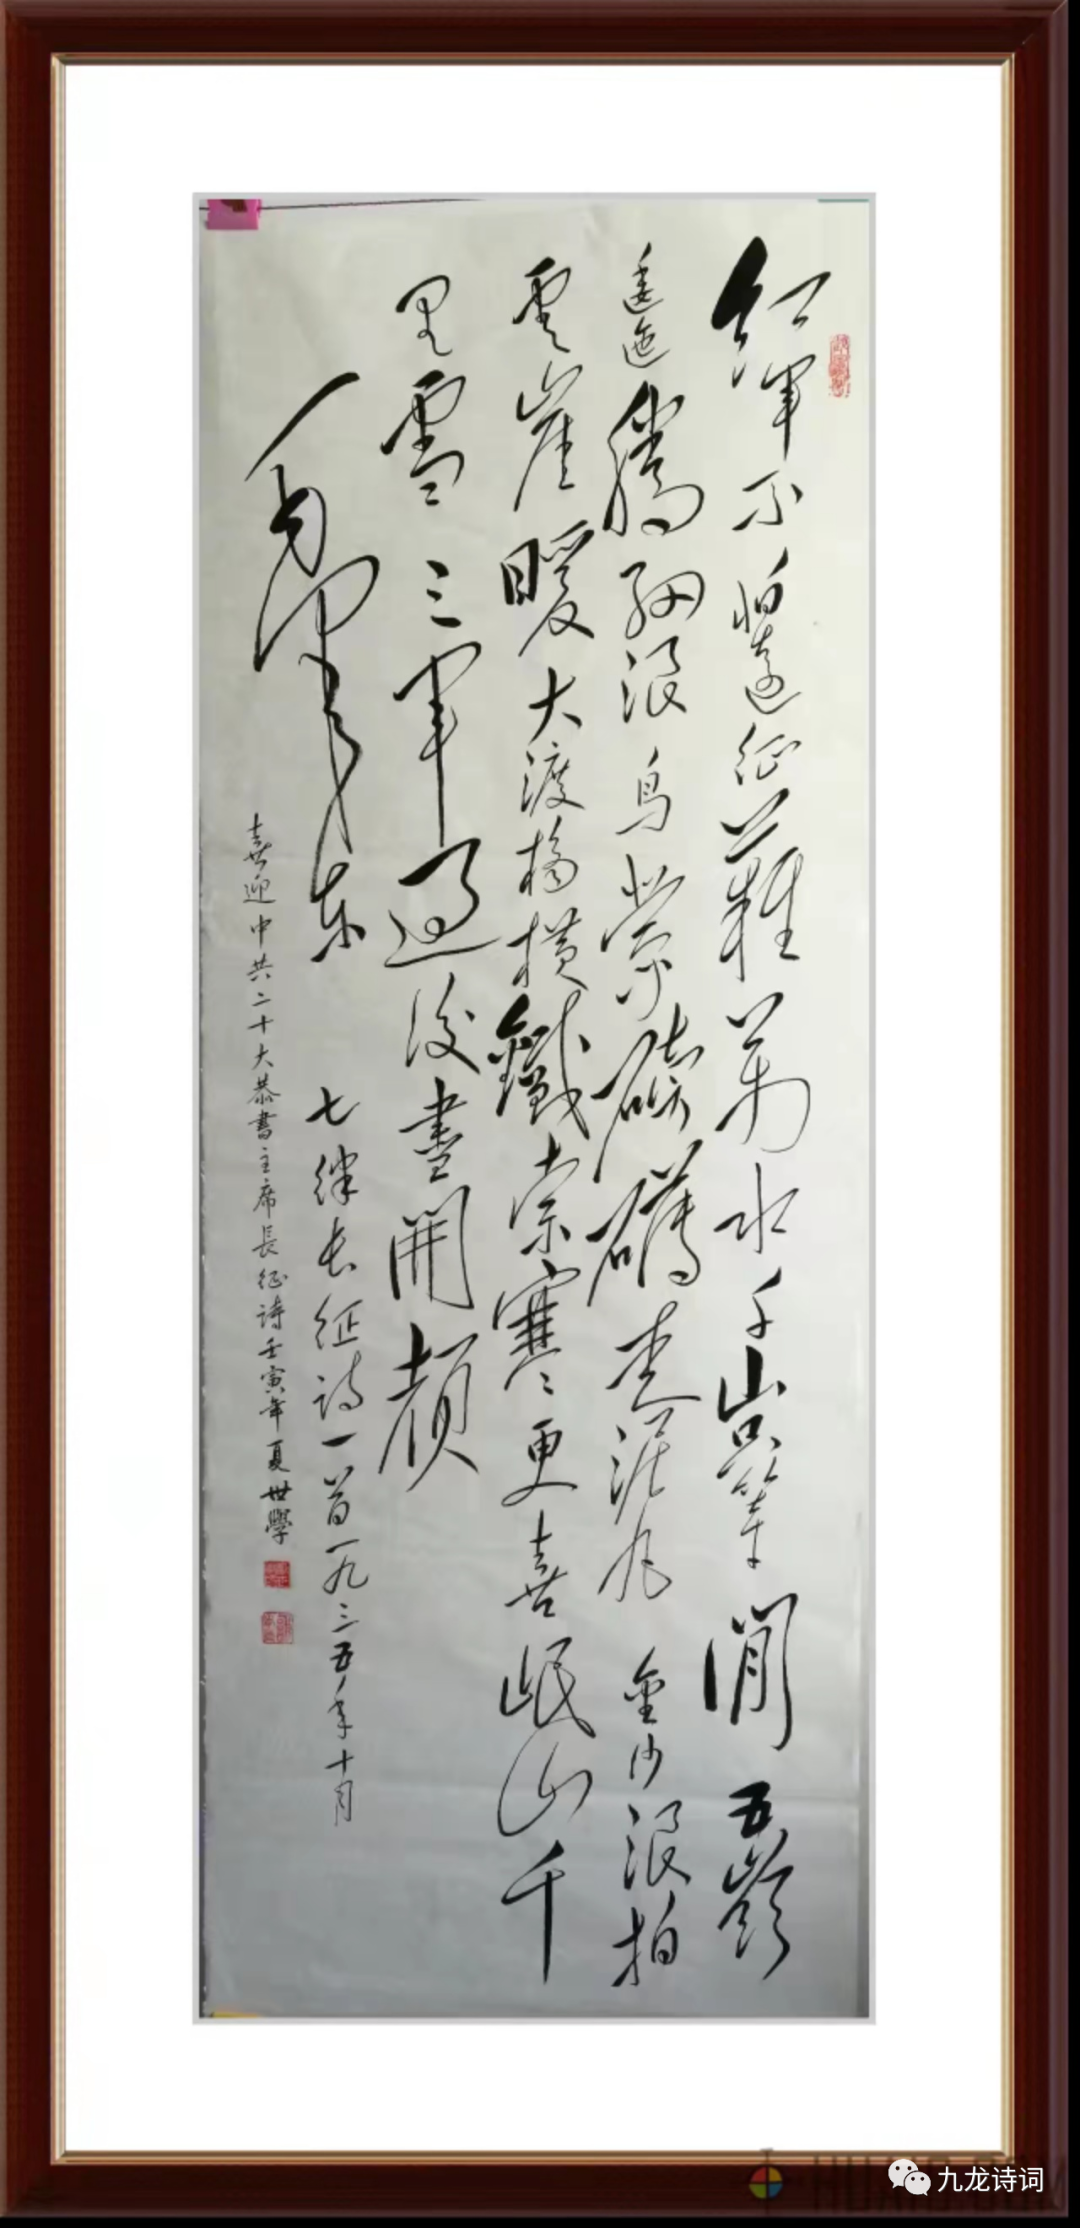 紅軍不怕遠征難萬水千山只等閒五嶺
逶迤騰細浪烏蒙磅礴走泥丸金沙浪拍
雲崖暖大渡橋橫鐵索寒更喜岷山千
里雪三軍過後盡開顏
毛澤東
七律長征詩一首一九三五年十月
喜迎中共二十大恭書主席長征詩壬寅年夏世學
九龙诗词